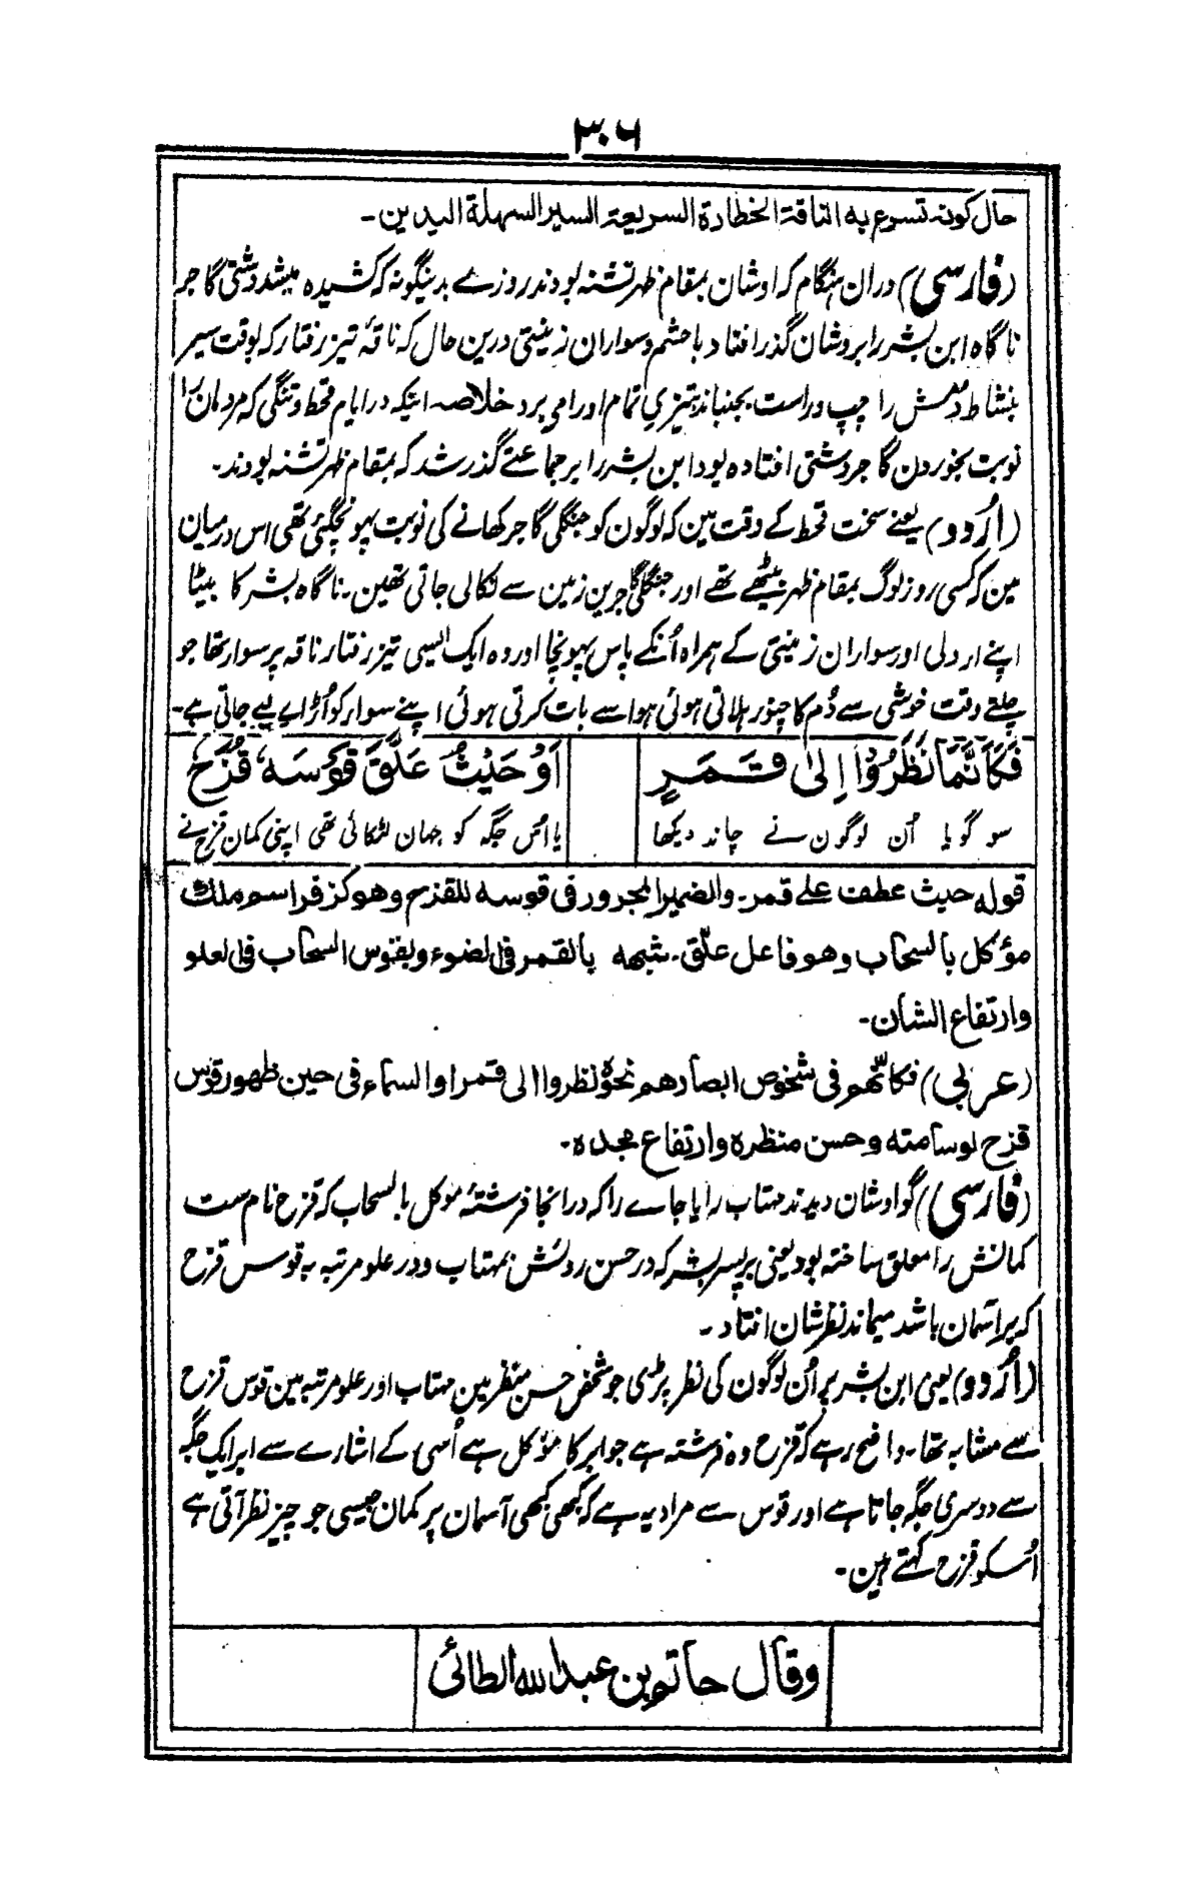 ٣٠٦
حال كونه تسرع به الناقة الخطارة السريعة السير السهلة اليدين۔
(فارسی) دران ہنگام کہ اوشان بمقام ظہر تشنہ بودند روزے بدینگونہ کہ کشیدہ میشد دشتی گاجر
ناگاہ ابن بشر را بروشان گذر افتاد باحشم وسواران زینتی درین حال کہ ناقۂ تیز رفتار کہ بوقت سیر
بنشاط دمش را چپ وراست بجنباند بتیزیِ تمام اورا می برد خلاصہ اینکہ در ایام قحط و تنگی کہ مردمان را
نوبت بخوردن گاجر دشتی افتادہ بود ابن بشر را بر جماعتے گذر شد کہ بمقام ظہر تشنہ بودند۔
(اُردو) یعنے سخت قحط کے وقت مین کہ لوگون کو جنگلی گاجر کھانے کی نوبت پہونچگئی تھی اس درمیان
مین کہ کسی روز لوگ بمقام ظہر بیٹھے تھے اور جنگلی گاجرین زمین سے نکالی جاتی تھین۔ ناگاہ بشر کا بیٹا
اپنے اردلی اور سواران زینتی کے ہمراہ اُنکے پاس پہونچا اور وہ ایک ایسی تیز رفتار ناقہ پر سوار تھا جو
چلتے وقت خوشی سے دُم کا چنور ہلاتی ہوئی ہوا سے بات کرتی ہوئی اپنے سوار کو اُڑاے لیے جاتی ہے۔
فَكَأَنَّمَا نَظَرُوْا إِلىٰ قَمَرٍ
اَوْ حَيْثُ عَلَّقَ قَوْسَهٗ قُزَحُ
سو گویا اُن لوگون نے چاند دیکھا
یا اُس جگہ کو جہان لٹکائی تھی اپنی کمان قزح نے
قوله حيث عطف على قمر۔ والضمير المجرور فى قوسه للقزح وهو كزفر اسم ملك
مؤكل بالسحاب وهو فاعل علّق۔ شبهه بالقمر فى الضوء وبقوس السحاب فى العلو
وارتفاع الشان۔
(عربی) فكأنّهم فى شخوص ابصارهم نحوهٗ نظروا الى قمر او السماء فى حين ظهور قوس
قزح لوسامته وحسن منظره وارتفاع مجده۔
(فارسی) گو اوشان دیدند مہتاب را یا جاے را کہ در انجا فرشتۂ موکل بالسحاب کہ قزح نام ست
کمانش را معلق ساختہ بود یعنی بر پسر بشر کہ در حسن روئش بمہتاب و در علو مرتبہ بہ قوس قزح
کہ بر آسمان باشد میماند نظر شان افتاد۔
(اُردو) یعنی ابن بشر پر اُن لوگون کی نظر پڑی جو شخص حسن منظر مین مہتاب اور علو مرتبہ مین قوس قزح
سے مشابہ تھا۔ واضح رہے کہ قزح وہ فرشتہ ہے جو ابر کا مؤکل ہے اُسی کے اشارے سے ابر ایک جگہ
سے دوسری جگہ جاتا ہے اور قوس سے مراد یہ ہے کہ کبھی کبھی آسمان پر کمان جیسی جو چیز نظر آتی ہے
اُسکو قزح کہتے ہین۔
وقال حاتم بن عبد الله الطائى